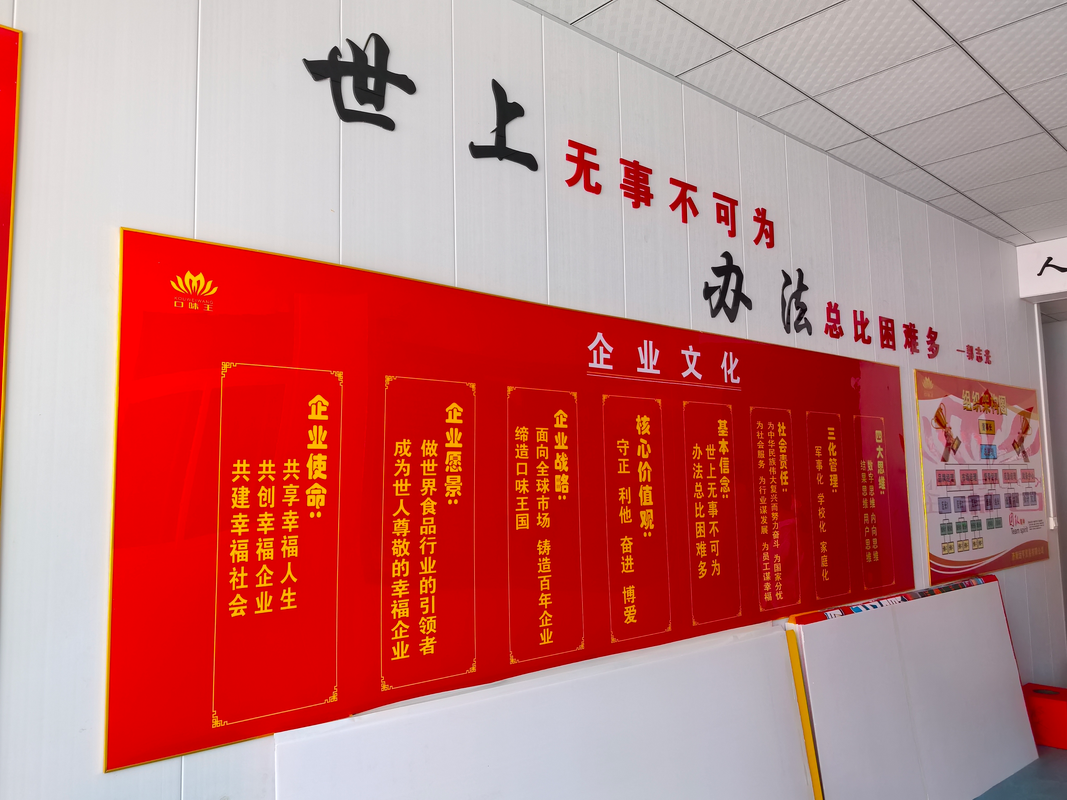 世上无事不可为
办法总比困难多
人
KOUWEIWANG
口味王
企业文化
企业使命：
共享幸福人生
共创幸福企业
共建幸福社会
企业愿景：
做世界食品行业的引领者
成为世人尊敬的幸福企业
企业战略：
面向全球市场 铸造百年企业
缔造口味王国
核心价值观：
守正 利他 奋进 博爱
基本信念：
世上无事不可为
办法总比困难多
社会责任：
为中华民族伟大复兴而努力奋斗 为国家分忧
为社会服务 为行业谋发展 为员工谋幸福
三化管理：
军事化 学校化 家庭化
四大思维：
数字思维 内向思维
结果思维 用户思维
组织架构图